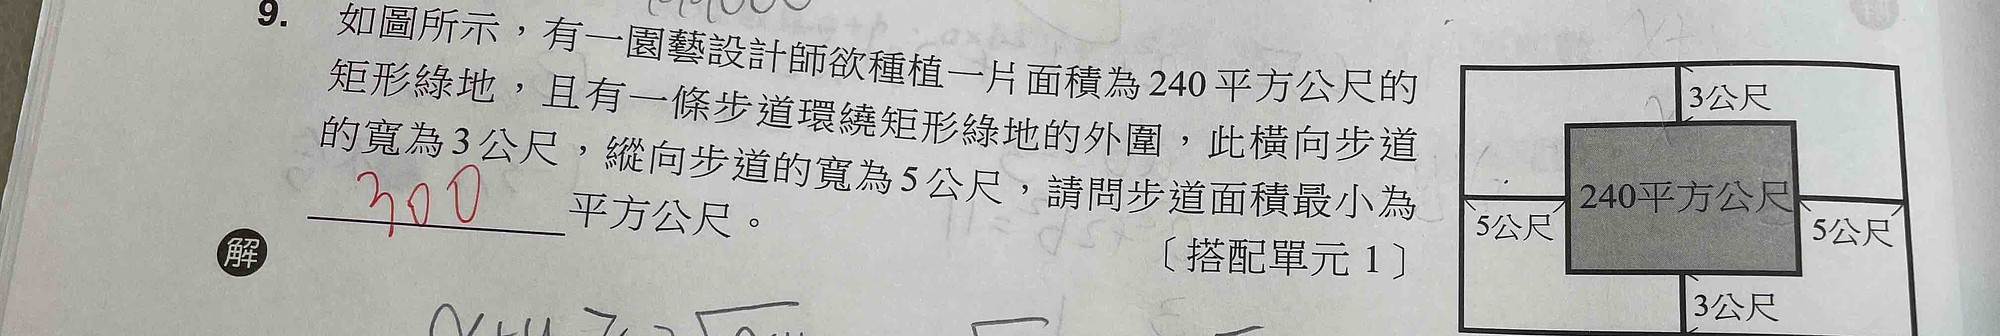 9. 如圖所示，有一園藝設計師欲種植一片面積為240平方公尺的
矩形綠地，且有一條步道環繞矩形綠地的外圍，此橫向步道
的寬為3公尺，縱向步道的寬為5公尺，請問步道面積最小為
300 平方公尺。
〔搭配單元 1〕
解
3公尺
240平方公尺
5公尺
5公尺
3公尺